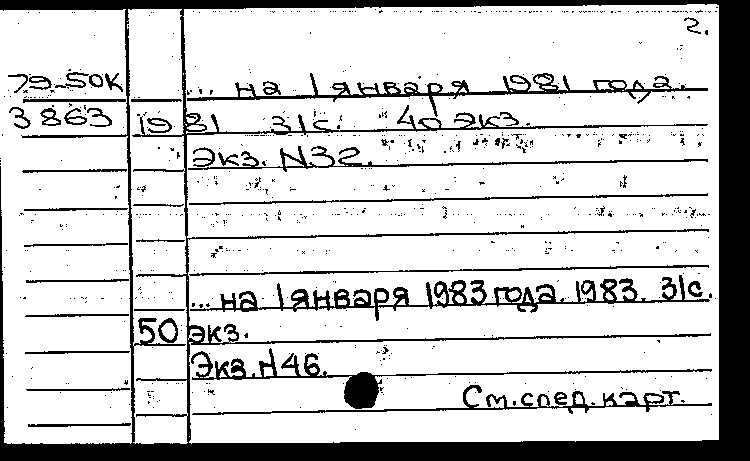 2.
79-50К ... на 1 января 1981 года.
3863 1981 31с. 40 экз.
Экз. N32.
... на 1 января 1983 года. 1983. 31с.
50 экз.
Экз. N46.
См. след. карт.